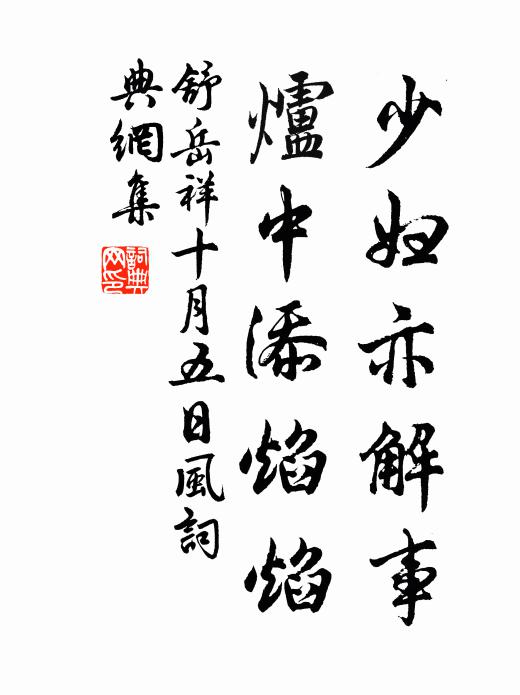 少妇亦解事
爐中添焰焰
舒岳祥十月五日風詞
典網集
詞典
网印